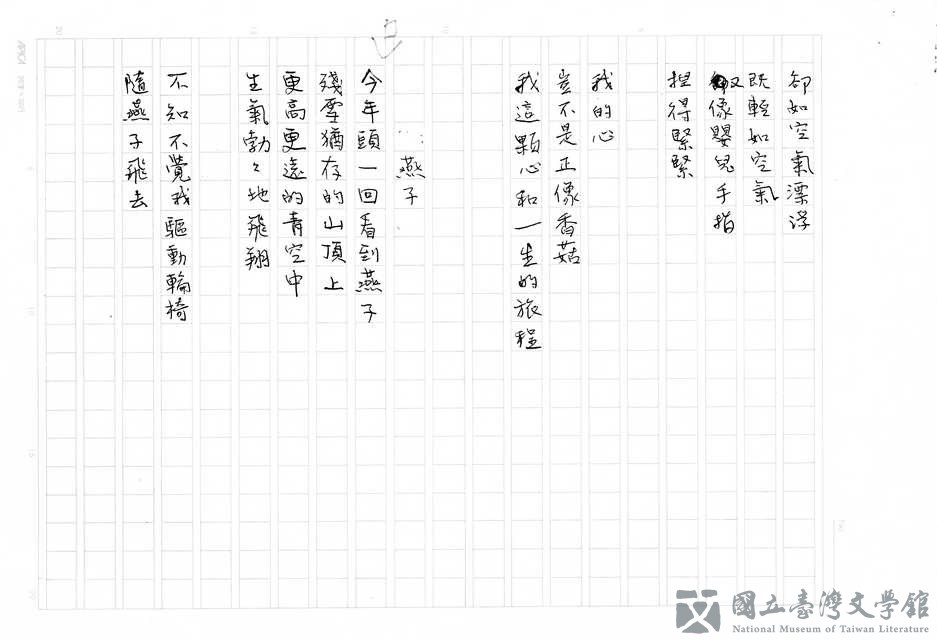 卻如空氣漂浮
既輕如空氣
又像嬰兒手指
捏得緊緊
我的心
豈不是正像香菇
我這顆心和一生的旅程
燕子
今年頭一回看到燕子
殘雪猶存的山頂上
更高更遠的青空中
生氣勃々地飛翔
不知不覺我驅動輪椅
隨燕子飛去
國立臺灣文學館
National Museum of Taiwan Literature